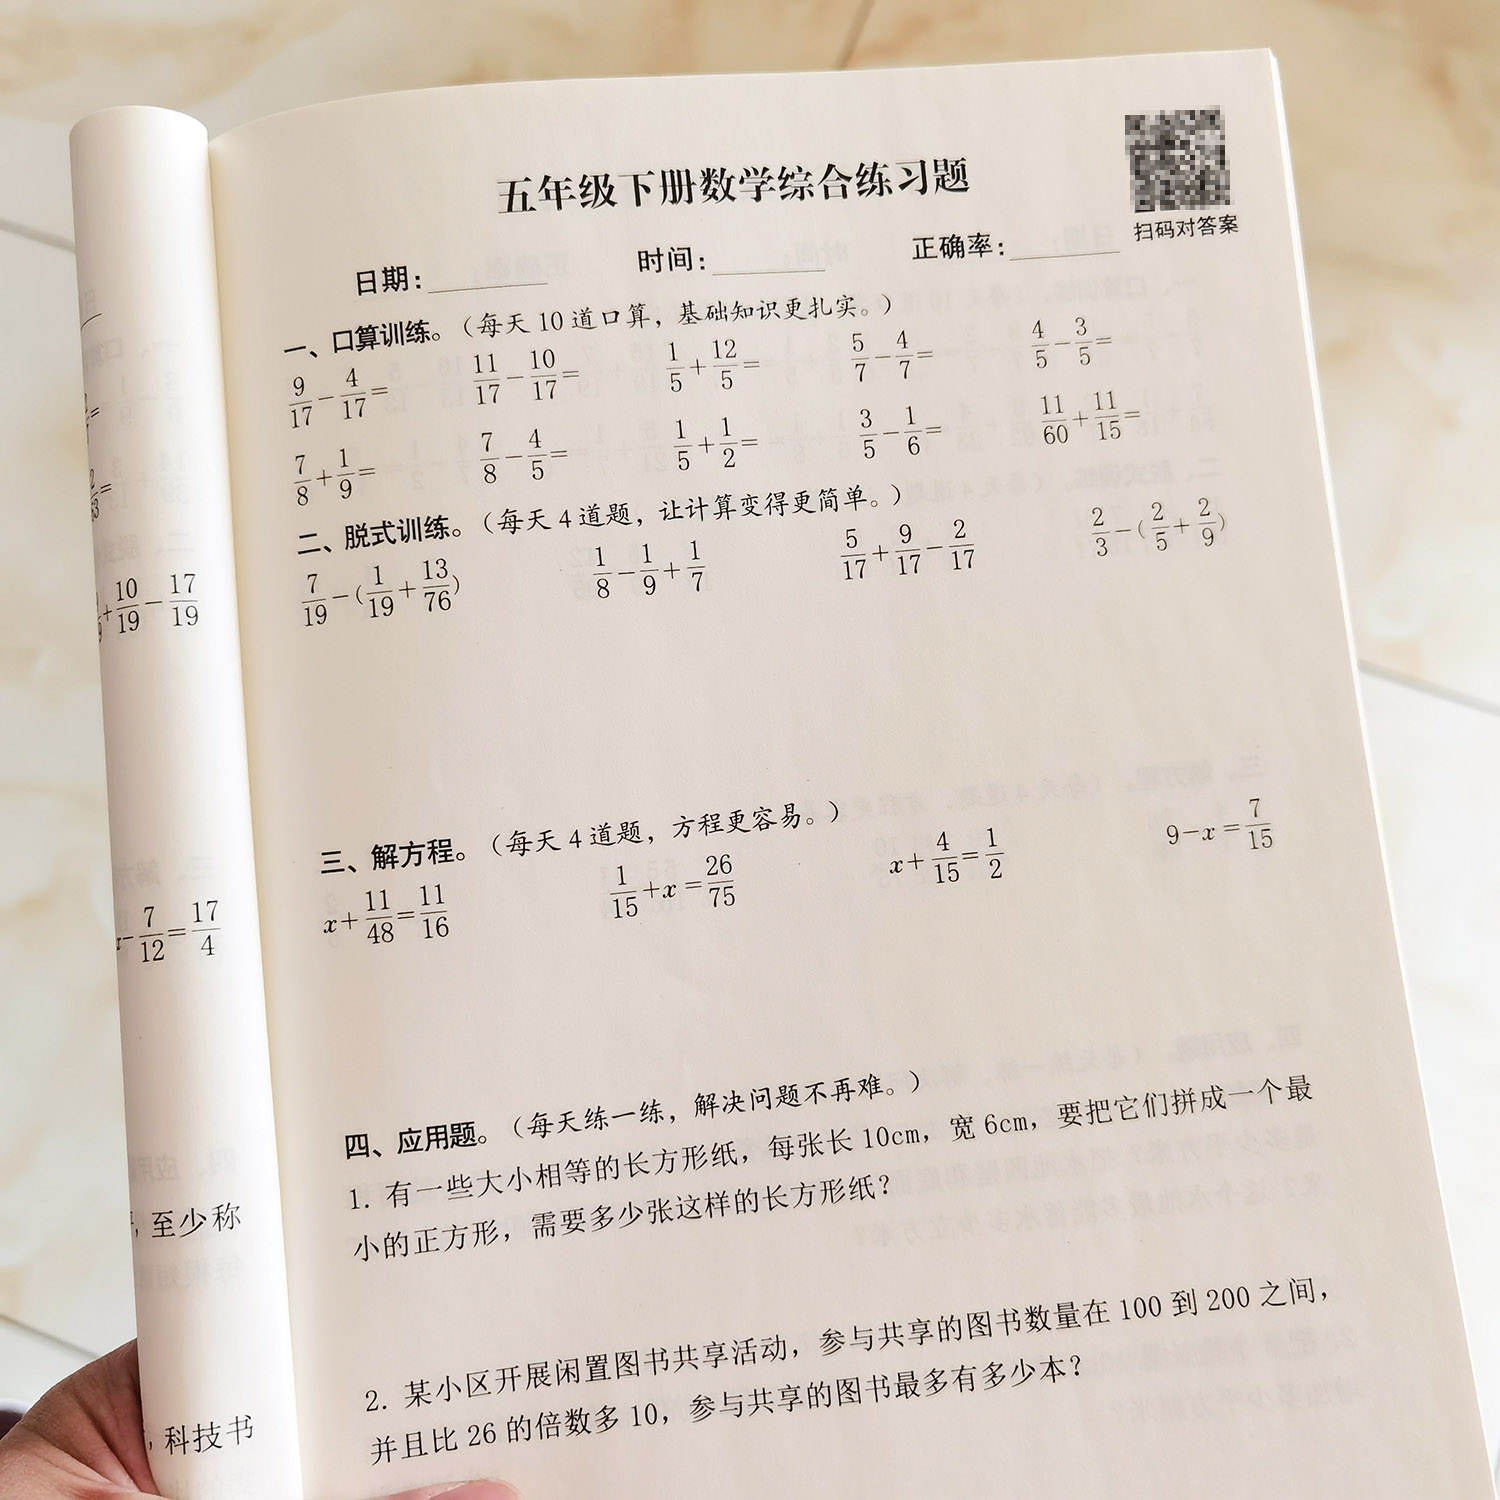 五年级下册数学综合练习题
扫码对答案
日期：________ 时间：________ 正确率：________
一、口算训练。（每天 10 道口算，基础知识更扎实。）
9/17－4/17= 11/17－10/17= 1/5+12/5= 5/7－4/7= 4/5－3/5=
7/8+1/9= 7/8－4/5= 1/5+1/2= 3/5－1/6= 11/60+11/15=
二、脱式训练。（每天 4 道题，让计算变得更简单。）
7/19－(1/19+13/76) 1/8－1/9+1/7 5/17+9/17－2/17 2/3－(2/5+2/9)
三、解方程。（每天 4 道题，方程更容易。）
x+11/48=11/16 1/15+x=26/75 x+4/15=1/2 9－x=7/15
四、应用题。（每天练一练，解决问题不再难。）
1. 有一些大小相等的长方形纸，每张长 10cm，宽 6cm，要把它们拼成一个最
小的正方形，需要多少张这样的长方形纸？
2. 某小区开展闲置图书共享活动，参与共享的图书数量在 100 到 200 之间，
并且比 26 的倍数多 10，参与共享的图书最多有多少本？
+10/19－17/19
－7/12=17/4
，至少称
，科技书